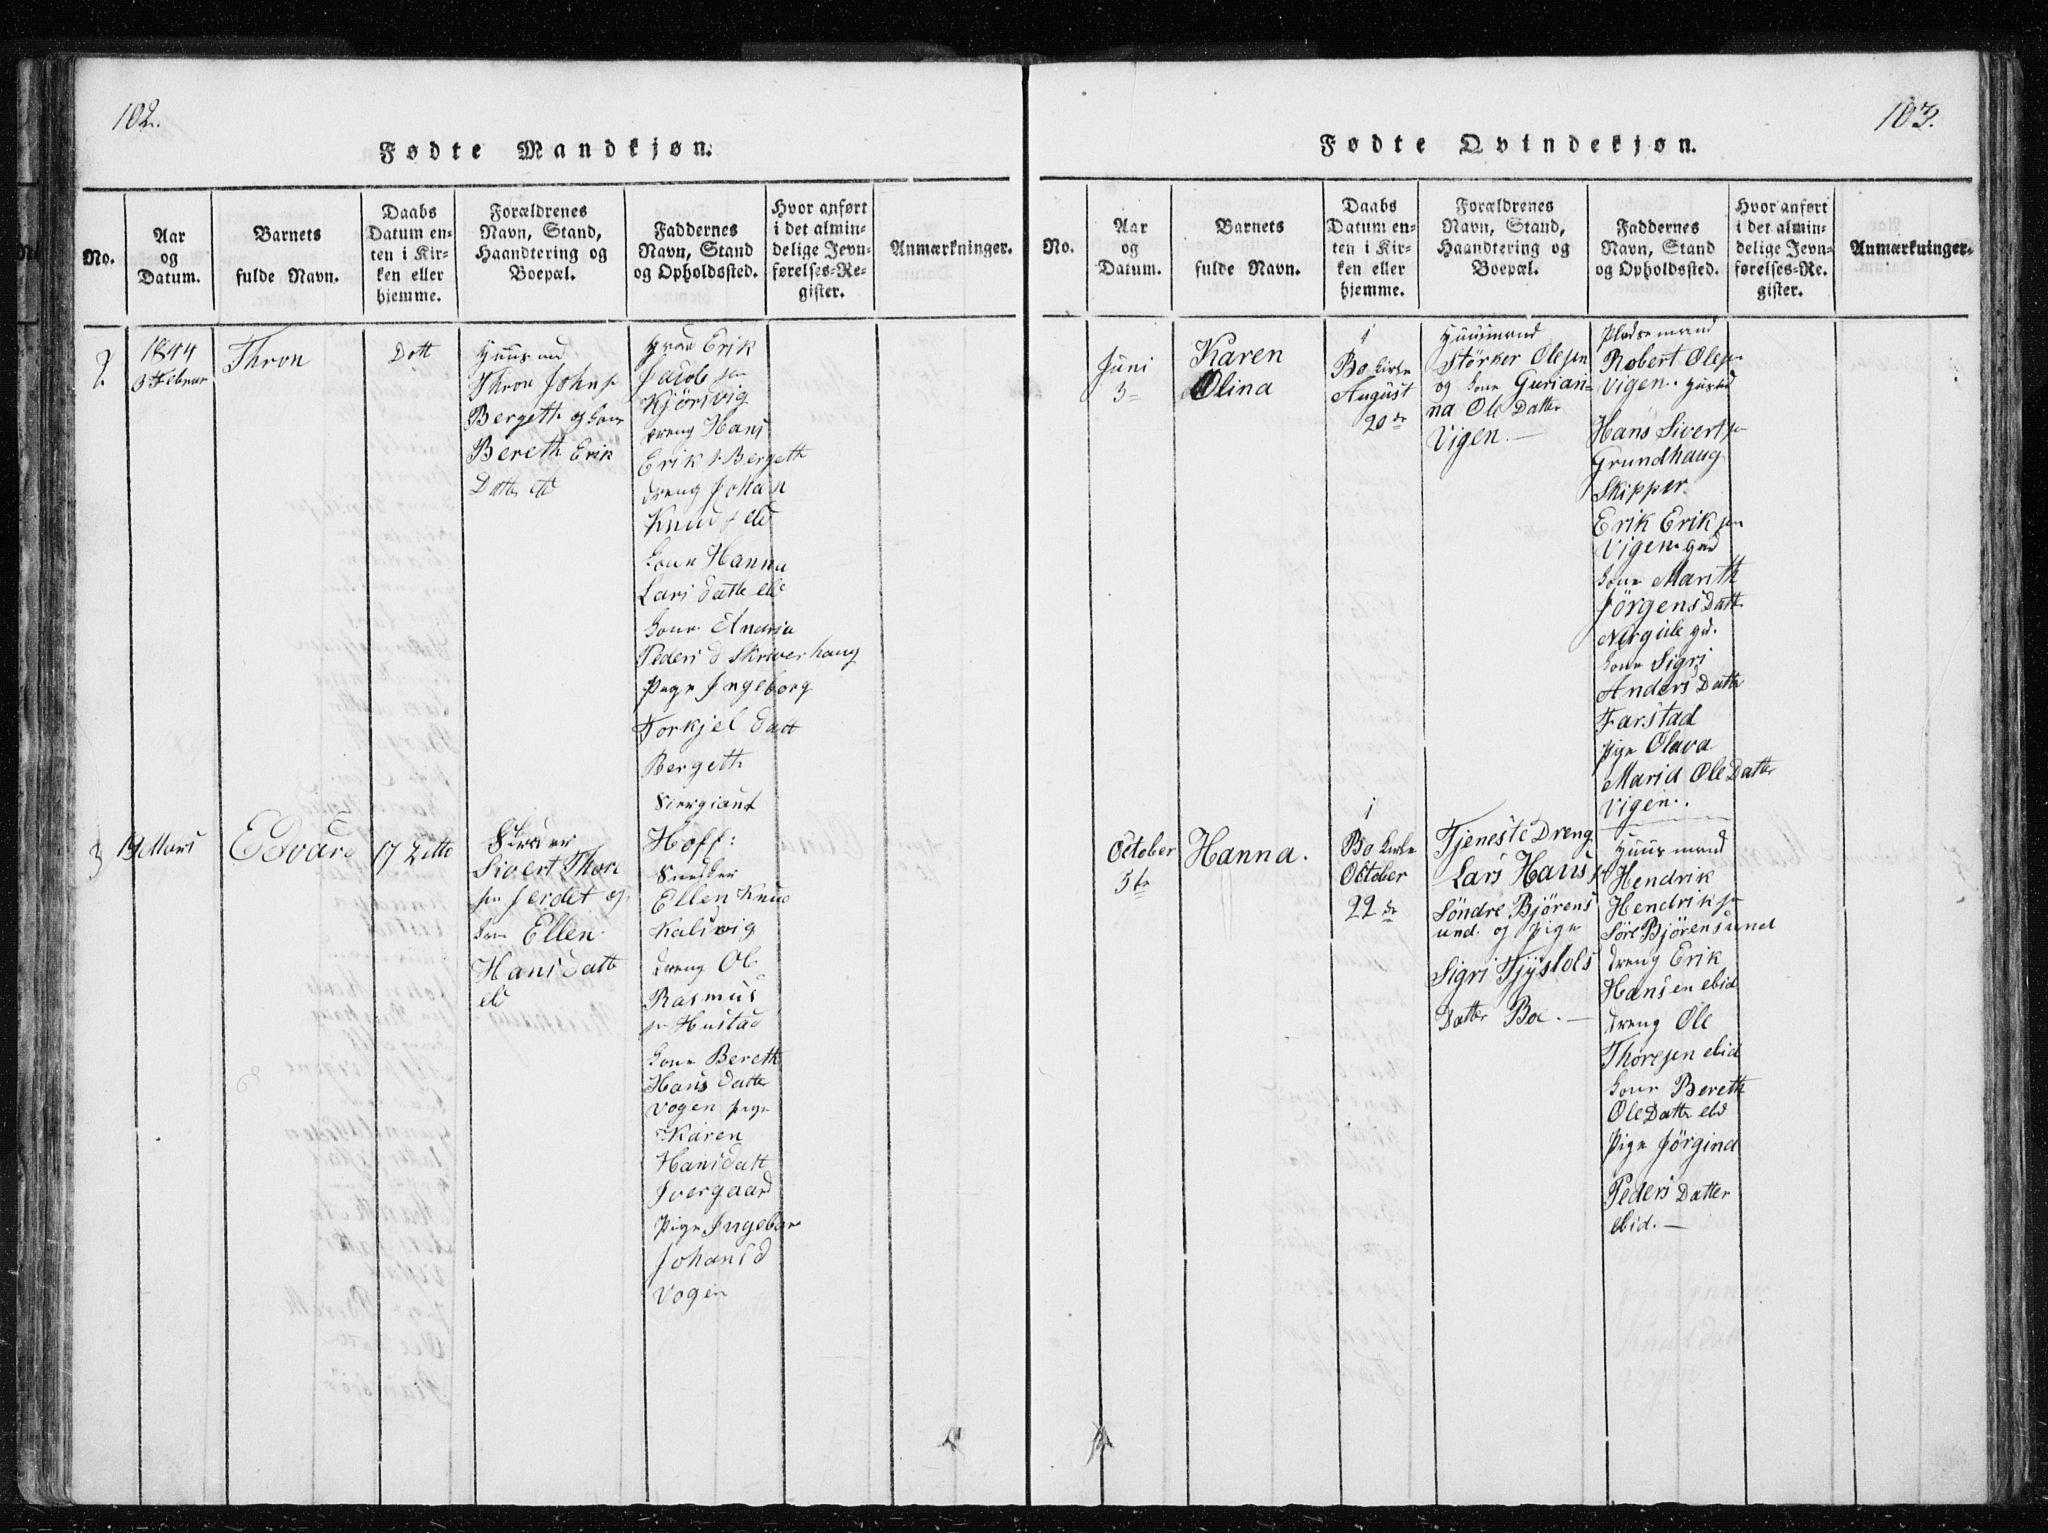 102.
Fødte Mandkjøn.
No.
Aar
og
Datum.
Barnets
fulde Navn.
Daabs
Datum en-
ten i Kir-
ken eller
hjemme.
Forældrenes
Navn, Stand,
Haandtering og
Boepæl.
Faddernes
Navn, Stand
og Opholdssted.
Hvor anført
i det almin-
delige Jevn-
førelses-Re-
gister.
Anmærkninger.
2
1844
3 Februar
Thron
Dott
Huusmd
Thron Johns
Bergeth og Kone
Bereth Erik
Datter eld
Erik
Jacobsen
Kjörsvig
Dreng Hans
Erik s Bergeth
Dreng Johan
Knud s eld
Kone Hanna
Lars datte eld
Kone Andria
Peders d Skriverhaug
Pige Ingeborg
Torkjel datt
Bergeth
3
19 Mars
Edvard
17 Ditto
Sivert Thore
sen Jerdet og
Kone Ellen
Hans datte
eld
Siergiant
Hoff:
Ellen Knud
Kalsvig
Dreng Ol
Rasmus
sen Hustad
Kone Bereth
Hans datter
Vogen Pige
Karen
Hansdatt
Ivergaard
Pige Ingebor
Johans d
Vogen
103.
Fødte Qvindekjøn.
No.
Aar
og
Datum.
Barnets
fulde Navn.
Daabs
Datum en-
ten i Kir-
ken eller
hjemme.
Forældrenes
Navn, Stand,
Haandtering og
Boepæl.
Faddernes
Navn, Stand
og Opholdssted.
Hvor anført
i det almin-
delige Jevn-
førelses-Re.
gister.
Anmærkninger.
Juni
3
Karen
Olina
i
Bo Kirke
August
20de
Huusmand
Størker Olesen
og Kone Gurian-
na Ole Datter
Vigen. —
Pladsemand
Robert Olesen
Vigen.
Hans Sivertsen
Grundhaug
Skipper.
Erik Eriksen
Vigen
Kone Marith
Jörgens Datt
Kone Sigri
Anders Datte
Farstad
Pige Olava
Maria Ole Datter
Vigen.
October
5te
Hanna.
i
Bo Kirke
October
22de
Tjeneste Dreng
Lars Hans
Söndre Björens
und. og Pige
Sigri Tjøstols
Datter Boe. —
Huusmand
Hendrik
Hendriksen
Søre Björensund
Dreng Erik
Hansen ebid
Dreng Ole
Thoresen ebid
Kone Bereth
Ole Datte eld
Pige Jörgina
Peders Datter
ebid. —